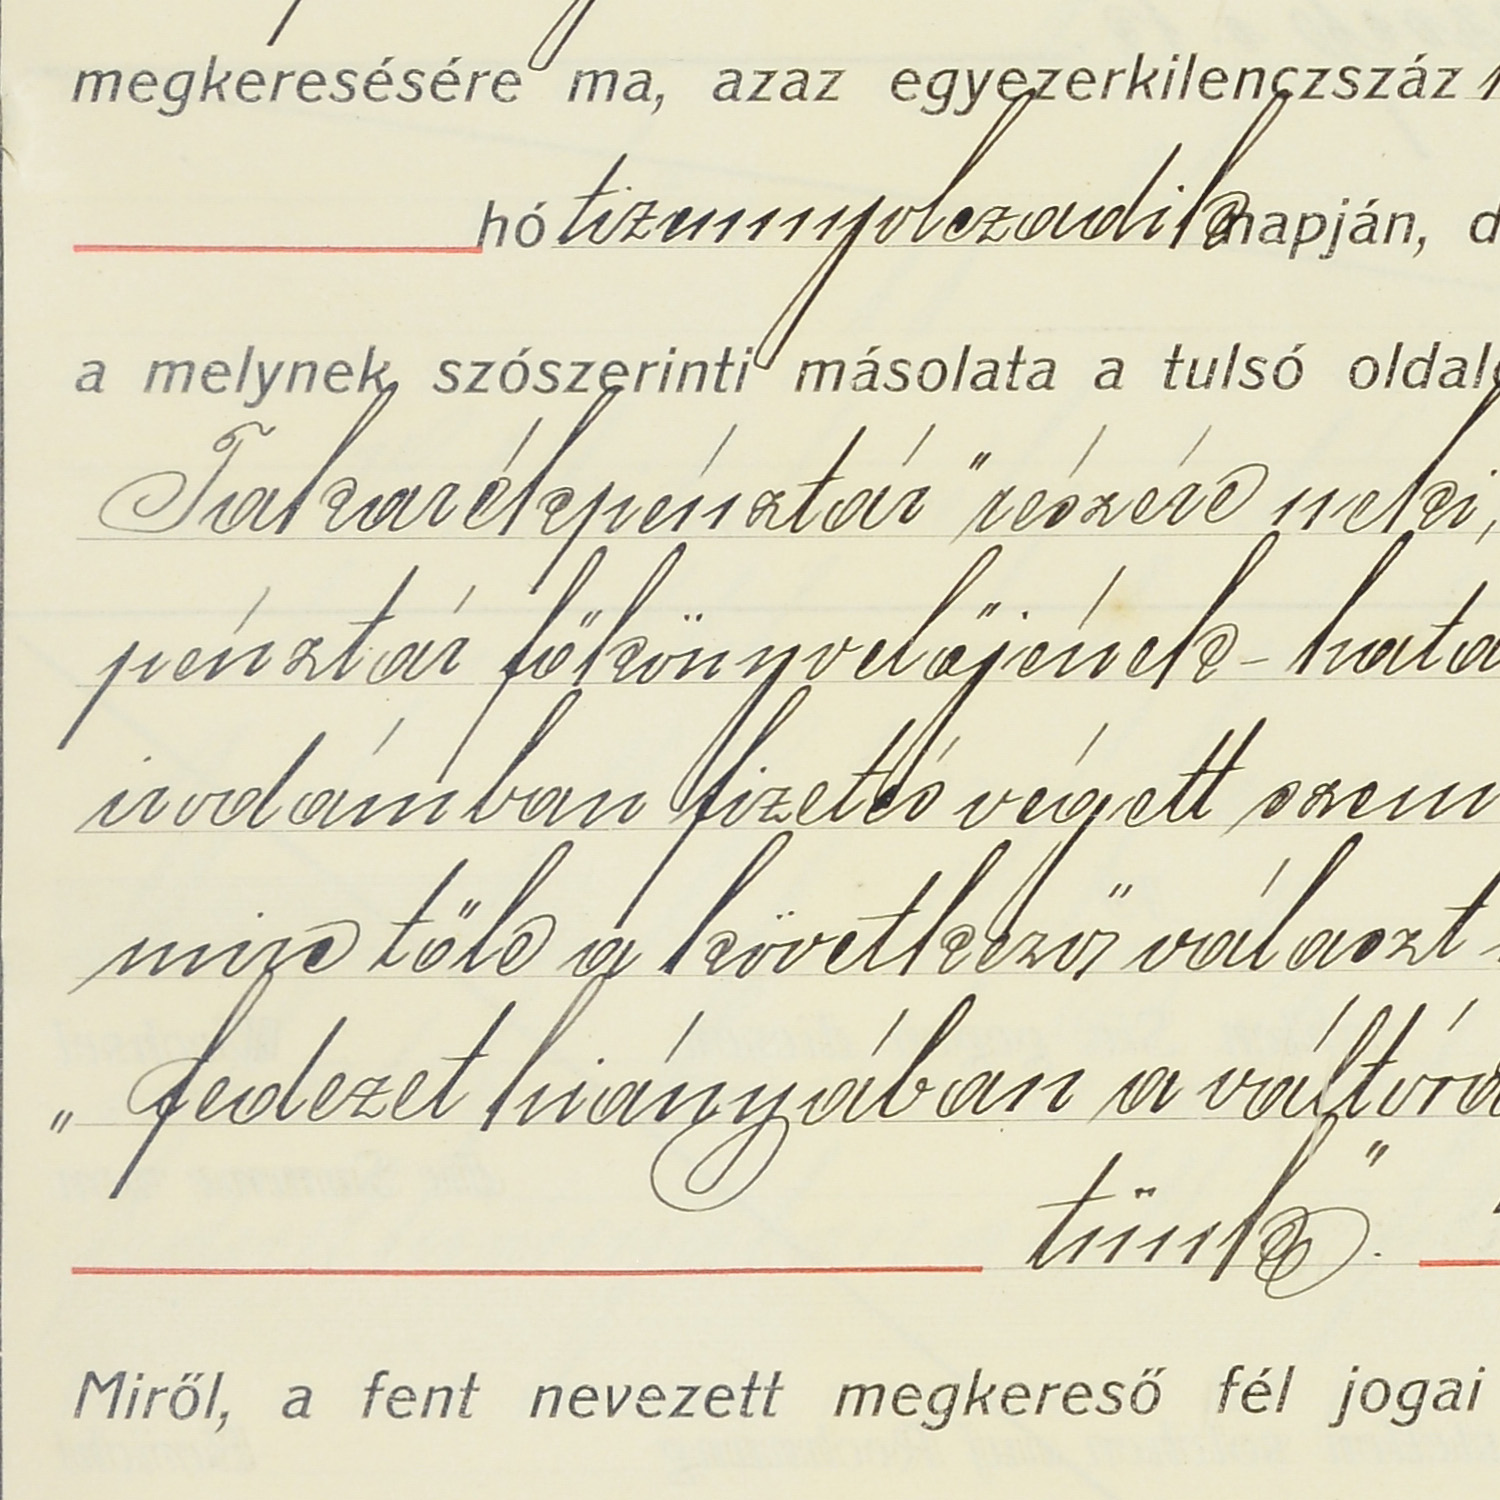 megkeresésére ma, azaz egyezerkilenczszáz
hó tizennyolczadik napján, d
a melynek szószerinti másolata a tulsó oldal
Takarékpénztár" részére neki,
pénztár főkönyvelőjének - hata
irodámban fizetés végett szem
mire tőle a következő választ
„fedezet hiányában a váltóra
tünk."
Miről, a fent nevezett megkereső fél jogai